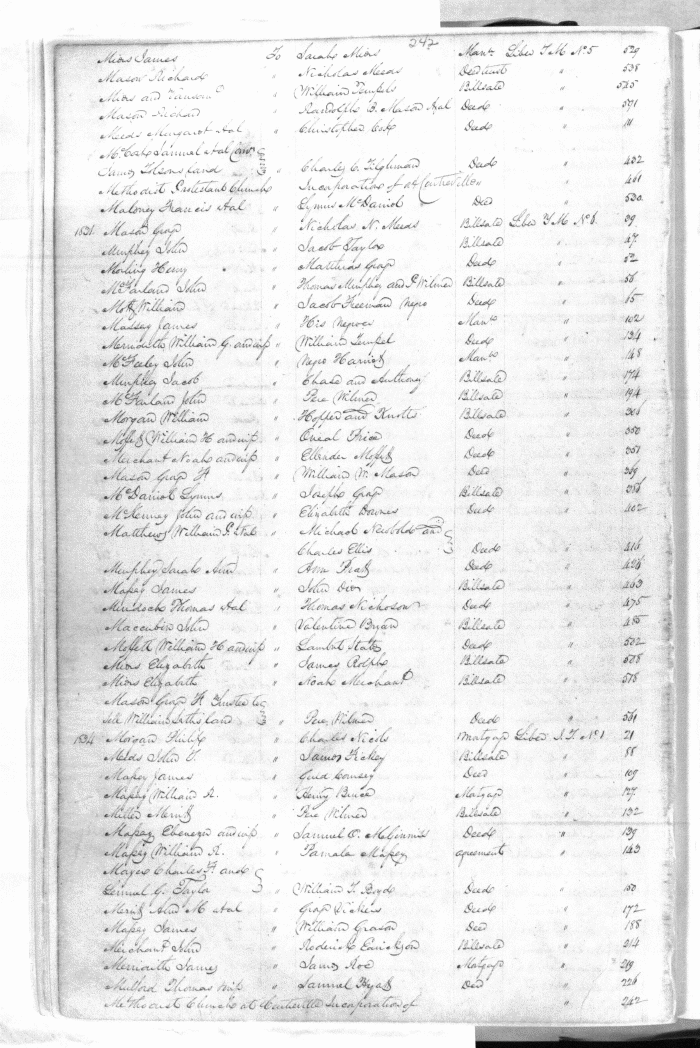 247
Mires James To Sarah Mires Man. Liber T M No 5 529
Mason Richard " Nicholas Meeds Deed trust " 538
Mires and " William Temple Billsale " 545
Mason Richard " Randolph B. Mason &al Deed 571
Meeds Margaret &al " Christopher Cox Deed "
McCoy Samuel &al
James Tolsons land " Charles C. Tilghman Deed " 452
Methodist Protestant Church " Incorporation of at Centreville " 461
Maloney Francis &al " Lymus McDaniel Deed " 530
1831 Mason Gray " Nicholas N. Meeds Billsale Liber T M No 6 39
Murphey John " Jacob Taylor Billsale " 47
Morling Henry " Matthias Gray Deed " 52
McFarland John " Thomas Murphey and P. Wilmer Billsale " 56
Mott William " Jacob Freeman Negro Deed " 65
Massey James " His Negroes Man. " 102
Meredith William G. and wife " William Tempel Deed " 134
McFeeley John " Negro Harriet Man. " 148
Murphey Jacob " Chase and Anthony Billsale " 174
McFarland John " Pere Wilmer Billsale " 194
Morgan William " Hopper and Knotts Billsale " 301
Moffett William H and wife " Oneal Price Deed " 350
Merchant Noah and wife " Ellender Moffett Deed " 351
Mason Gray F " William W. Mason Deed " 359
McDaniel Lymus " Joseph Gray Billsale " 386
McKenney John and wife " Elizabeth Downes Deed " 402
Matthews William P. &al " Michael Newbold and
Charles Ellis Deed " 416
Murphey Sarah Ann " Ann Pratt Deed " 426
Massey James " John Dix Billsale " 463
Murdoch Thomas &al " Thomas Nicholson Deed " 475
Maccubin John " Valentine Brien Billsale " 485
Meffett William H and wife " Lambt State Deed " 502
Mires Elizabeth " James Rolph Billsale " 508
Mires Elizabeth " Noah Merchant Billsale " 518
Mason Gray F Trustee to
sell William land " Pere Wilmer Deed " 551
1834 Morgan Philip " Charles Nicols Matgage Liber J. T. No 1 21
Meeds John T. " James Dickey Billsale " 88
Massey James " Gould Comsey Deed " 109
Massey William A. " Henry Bruce Matgage " 127
Miller Merrit " Pere Wilmer Billsale " 132
Massey Ebenezer and wife " Samuel O. McGinnis Deed " 139
Massey William A. " Parmala Massey agreement " 143
Mayer Charles F. and
Lemuel G. Taylor " William T. Boyd Deed " 150
Merrit Ann M &al " Gray Vickers Deed " 172
Massey James " William Grason Deed " 188
Merchant John " Roderick Earickson Billsale " 214
Meredith James " James Roe Matgage " 219
Mulford Thomas wife " Samuel Hyatt Deed " 226
Methodist Church at Centreville Incorporation of " 242